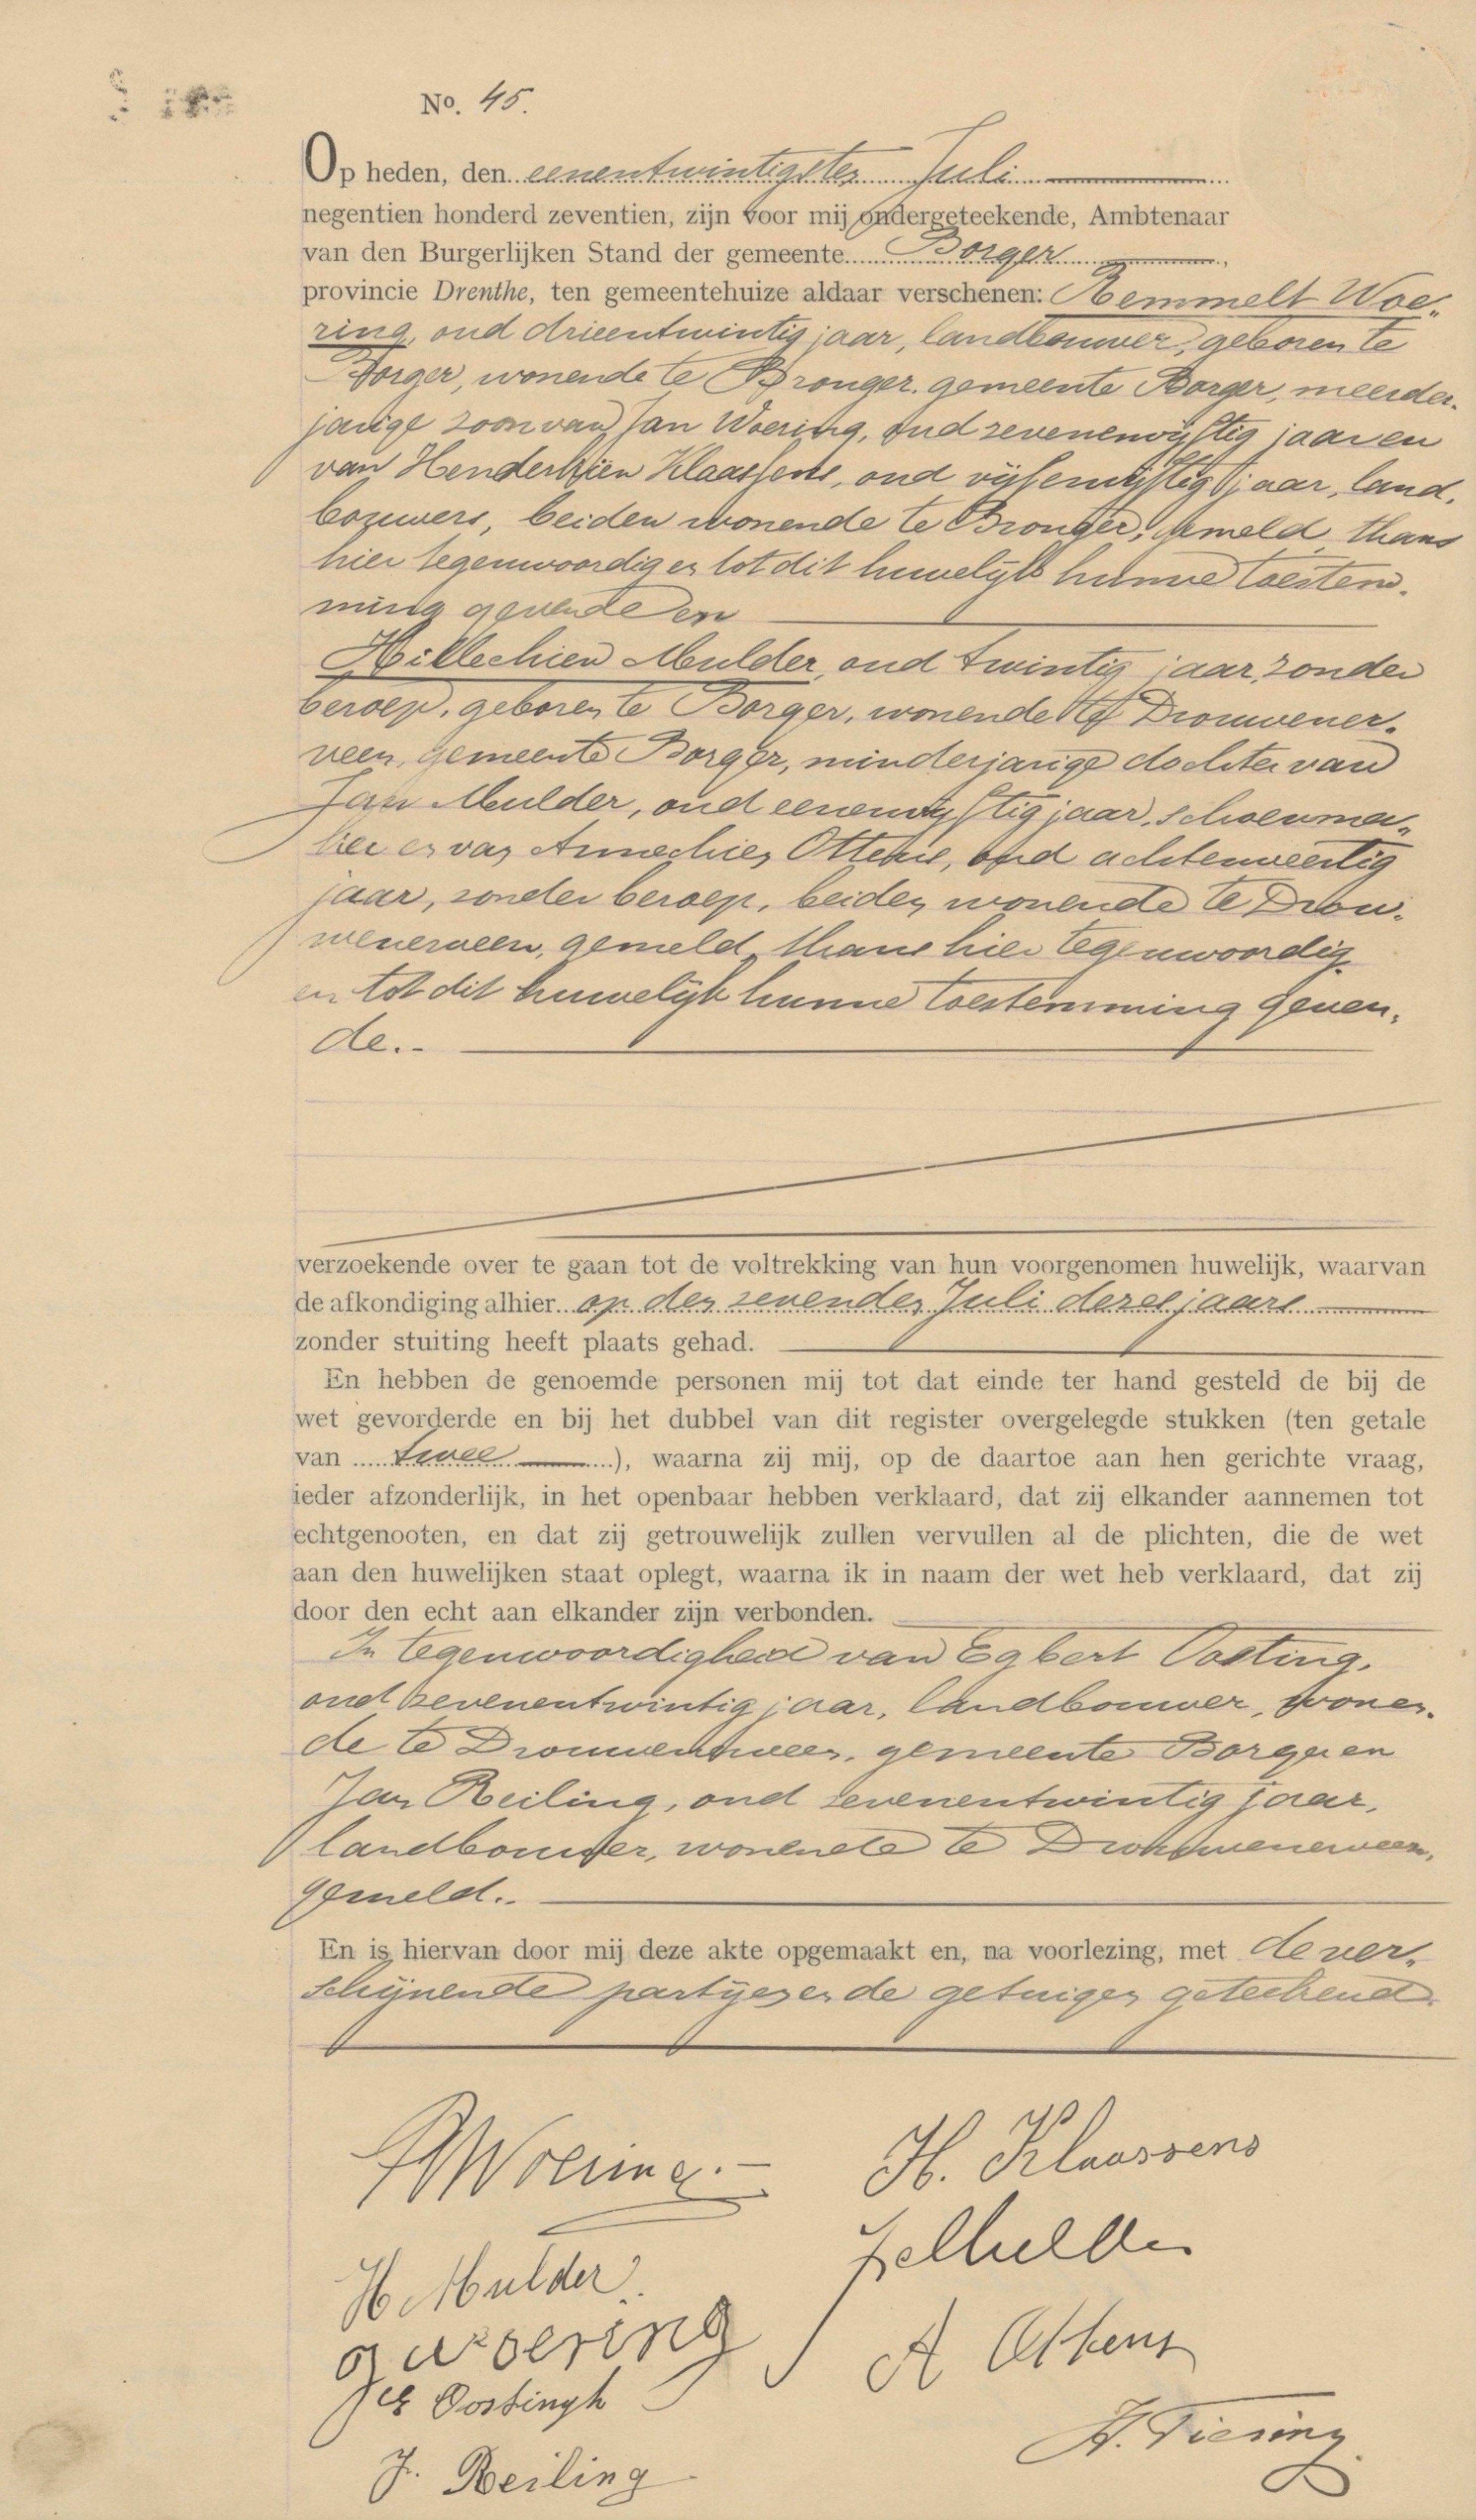 No. 45.
Op heden, den eenentwintigsten Juli
negentien honderd zeventien, zijn voor mij ondergeteekende, Ambtenaar
van den Burgerlijken Stand der gemeente Borger,
provincie Drenthe, ten gemeentehuize aldaar verschenen: Remmelt Woe-
ring, oud drieentwintig jaar, landbouwer, geboren te
Borger, wonende te Bronger, gemeente Borger, meerder-
jarige zoon van Jan Woering, oud zevenenvijftig jaar en
van Henderkien Klaassens, oud vijfenvijftig jaar, land-
bouwers, beiden wonende te Bronger, gemeld, thans
hier tegenwoordig en tot dit huwelijk hunne toestem-
ming gevende en
Hillechien Mulder, oud twintig jaar, zonder
beroep, geboren te Borger, wonende te Drouwener-
veen, gemeente Borger, minderjarige dochter van
Jan Mulder, oud eenenvijftig jaar, schoenma-
ker en van Annechien Ottens, oud achtenveertig
jaar, zonder beroep, beiden wonende te Drou-
wenerveen, gemeld, thans hier tegenwoordig
en tot dit huwelijk hunne toestemming geven-
de.-
verzoekende over te gaan tot de voltrekking van hun voorgenomen huwelijk, waarvan
de afkondiging alhier op den zevenden Juli dezes jaars
zonder stuiting heeft plaats gehad.
En hebben de genoemde personen mij tot dat einde ter hand gesteld de bij de
wet gevorderde en bij het dubbel van dit register overgelegde stukken (ten getale
van twee), waarna zij mij, op de daartoe aan hen gerichte vraag,
ieder afzonderlijk, in het openbaar hebben verklaard, dat zij elkander aannemen tot
echtgenooten, en dat zij getrouwelijk zullen vervullen al de plichten, die de wet
aan den huwelijken staat oplegt, waarna ik in naam der wet heb verklaard, dat zij
door den echt aan elkander zijn verbonden.
In tegenwoordigheid van Egbert Oosting,
oud zevenentwintig jaar, landbouwer, wonen-
de te Drouwenerveen, gemeente Borger en
Jan Reiling, oud zevenentwintig jaar,
landbouwer, wonende te Drouwenerveen,
gemeld.
En is hiervan door mij deze akte opgemaakt en, na voorlezing, met de ver-
schijnende partijen en de getuigen geteekend.
R Woering.- H. Klaassens
H Mulder. J Mulder
J Woering A Ottens
E Oostingh
H. Tiesing
J. Reiling